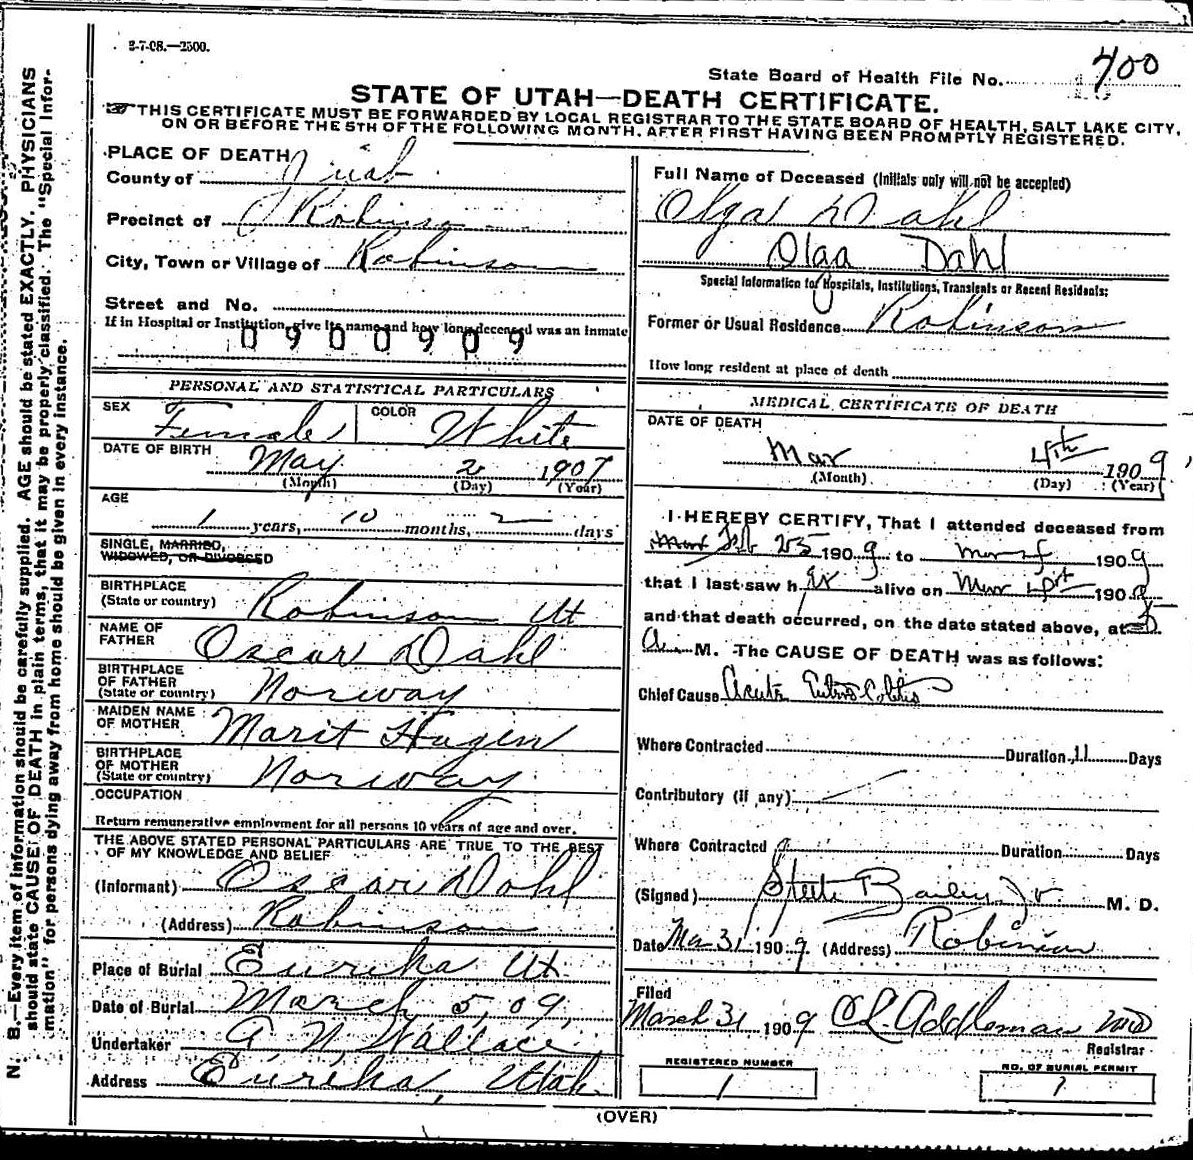 2-7-08.—2500.
State Board of Health File No. 400
STATE OF UTAH—DEATH CERTIFICATE.
THIS CERTIFICATE MUST BE FORWARDED BY LOCAL REGISTRAR TO THE STATE BOARD OF HEALTH, SALT LAKE CITY,
ON OR BEFORE THE 5TH OF THE FOLLOWING MONTH, AFTER FIRST HAVING BEEN PROMPTLY REGISTERED.
N. B.—Every item of information should be carefully supplied. AGE should be stated EXACTLY. PHYSICIANS
should state CAUSE OF DEATH in plain terms, that it may be properly classified. The "Special Infor-
mation" for persons dying away from home should be given in every instance.
PLACE OF DEATH
County of Juab
Precinct of Robinson
City, Town or Village of Robinson
Street and No.
If in Hospital or Institution, give its name and how long deceased was an inmate
0900909
PERSONAL AND STATISTICAL PARTICULARS
SEX Female COLOR White
DATE OF BIRTH May 2 1907
(Month) (Day) (Year)
AGE
1 years, 10 months, 2 days
SINGLE, MARRIED,
WIDOWED, OR DIVORCED
BIRTHPLACE
(State or country) Robinson Ut
NAME OF
FATHER Oscar Dahl
BIRTHPLACE
OF FATHER
(State or country) Norway
MAIDEN NAME
OF MOTHER Marit Hagen
BIRTHPLACE
OF MOTHER
(State or country) Norway
OCCUPATION
Return remunerative employment for all persons 10 years of age and over.
THE ABOVE STATED PERSONAL PARTICULARS ARE TRUE TO THE BEST
OF MY KNOWLEDGE AND BELIEF
(Informant) Oscar Dahl
(Address) Robinson
Place of Burial Eurika Ut
Date of Burial March 5, 09,
Undertaker A N Wallace
Address Eurika, Utah
Full Name of Deceased (Initials only will not be accepted)
Olga Dahl
Olga Dahl
Special Information for Hospitals, Institutions, Transients or Recent Residents:
Former or Usual Residence Robinson
How long resident at place of death
MEDICAL CERTIFICATE OF DEATH
DATE OF DEATH
Mar 4th 1909
(Month) (Day) (Year)
I HEREBY CERTIFY, That I attended deceased from
Feb 25 1909 to 1909
that I last saw her alive on Mar 190
and that death occurred, on the date stated above, at
A. M. The CAUSE OF DEATH was as follows:
Chief Cause Acute Entro Colitis
Where Contracted Duration 11 Days
Contributory (if any)
Where Contracted Duration Days
(Signed) Steele Bailey Jr. M. D.
Date Mar 31 1909 (Address) Robinson
Filed
March 31 1909 CL Addleman MD
Registrar
REGISTERED NUMBER
1
NO. OF BURIAL PERMIT
1
(OVER)